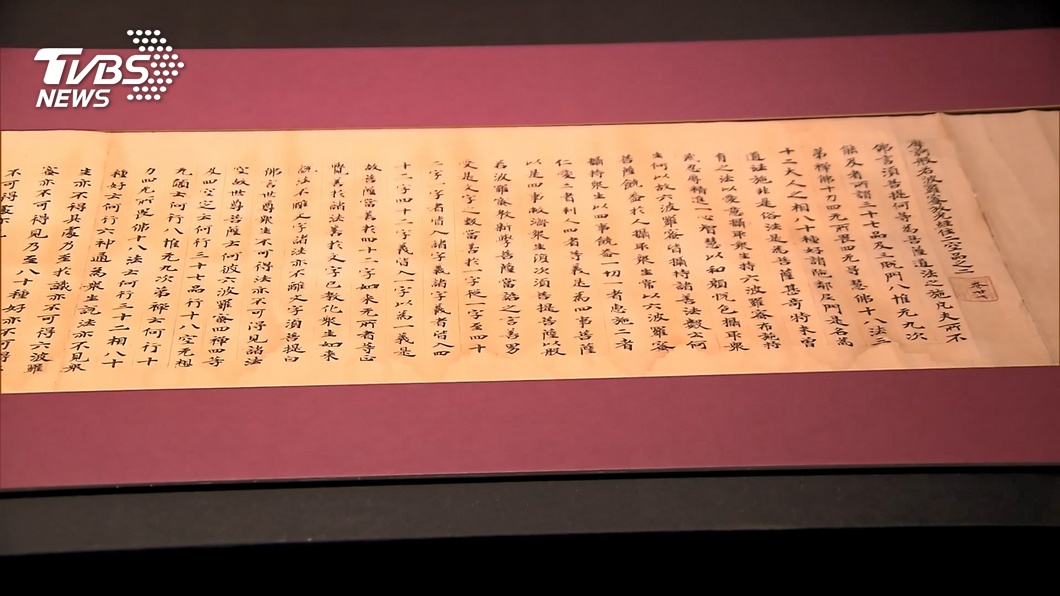 TVBS
NEWS
摩訶般若波羅蜜放光經住二空品之二
佛言須菩提何等為菩薩道法之施凡夫所不
能及者所謂三十七品及三脫門八惟无九次
第禪佛十力四无所畏四无㝵慧佛十八法三
十二大人之相八十種好諸陀鄰尼門是名為
道法施非是俗法是為菩薩甚奇特未曾
有之法以愛意攝取眾生持六波羅蜜布施持
戒忍辱精進一心智慧以和顏悅色攝取眾
生何以故六波羅蜜皆攝持諸善法數云何
菩薩饒益於人攝取眾生常以六波羅蜜
攝持眾生以四事饒益一切一者惠施二者
仁愛三者利人四者等義是為四事菩薩
以是四事救濟眾生復次須菩提菩薩以般
若波羅蜜教新學菩薩當諮之言善男
受是文字之數當善於一字從一字至四十
二字一字者皆入諸字義諸字義者皆入四
十二字四十二字義皆入一字以為一義是
故菩薩當善於四十二字如來无所著等正
覺善於諸法善於文字已教化眾生如來
說法不離文字諸法亦不離文字須菩提白
佛言世尊眾生不可得法亦不可得見諸法
空故世尊菩薩云何彼六波羅蜜四禪四等
及四空定云何行三十七品行十八空无相
无願云何行八惟无九次第禪云何行十
力四无所畏佛十八法云何行三十二相八十
種好云何行六神通為眾生說法亦不見眾
生亦不得其處乃至於識亦不可得六波羅
蜜亦不可得見乃至八十種好亦不可得
不可得處亦